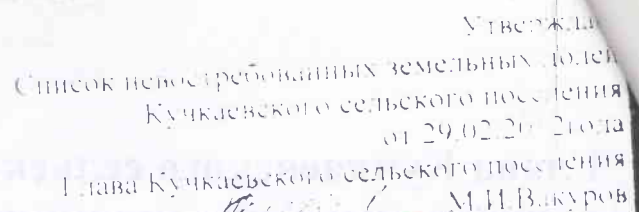 Утвержда
Список невостребованных земельных долей
Кучкаевского сельского поселения
от 29.02.2012года
Глава Кучкаевского сельского поселения